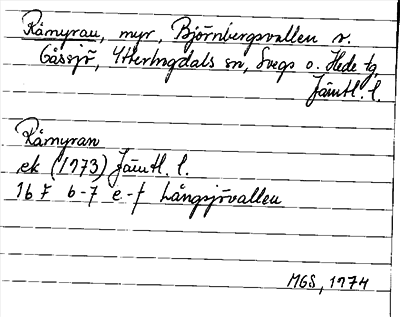 Råmyran, myr, Björnbergsvallen s.
Gåssjö, Ytterhogdals sn, Svegs o. Hede tg
Jämtl. l.
Råmyran
ek (1973) Jämtl. l.
1b 7 b-7 e-f Långsjövallen
MGS, 1974